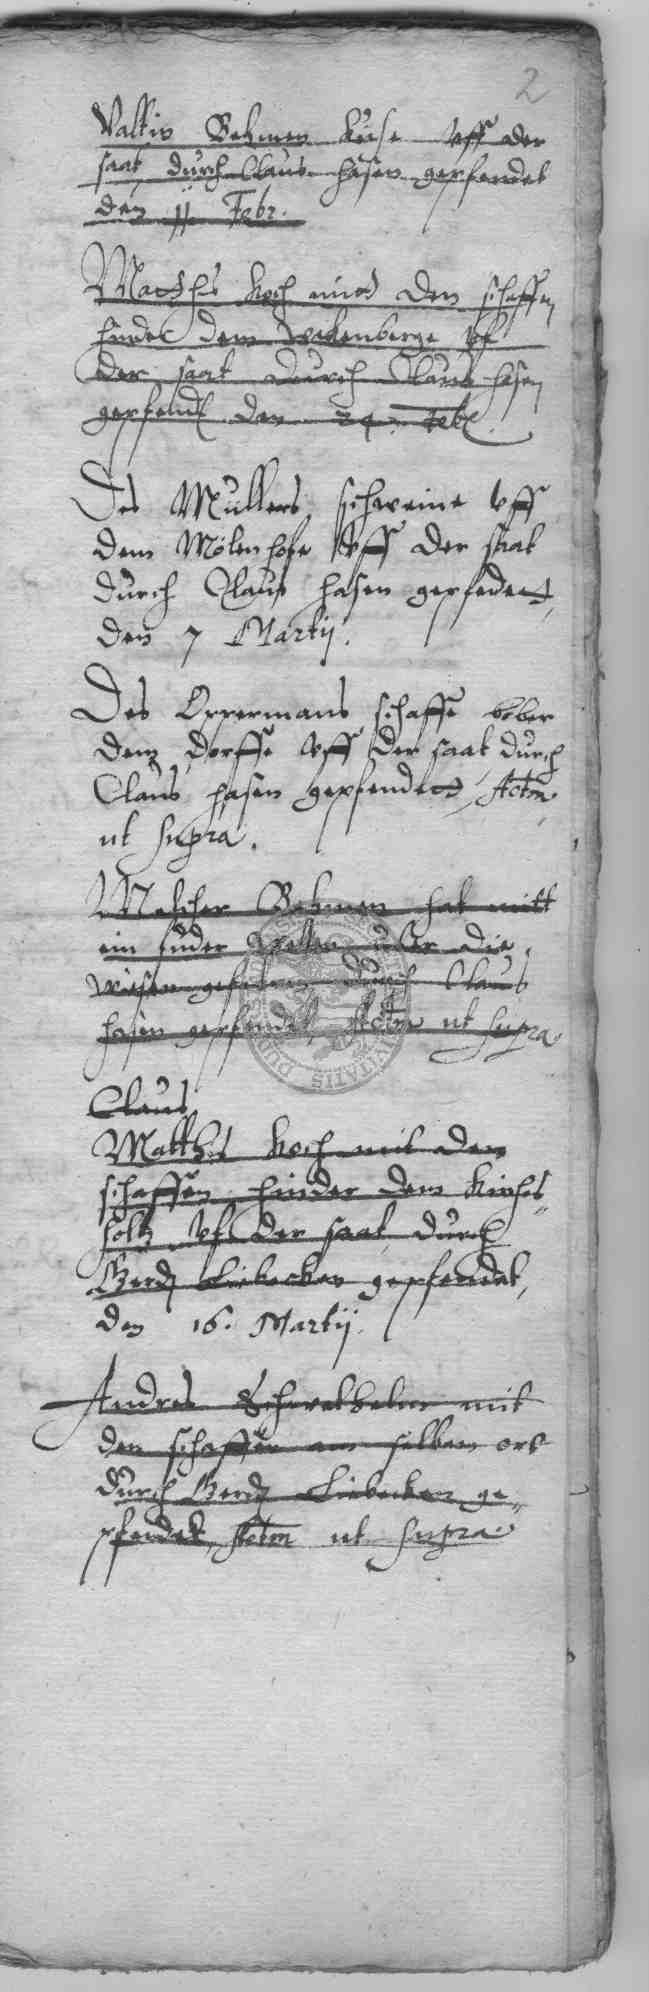 2
Valtin Behmen Küise Vff der
saat durch Claus hasen gepfendet
den 11 Febr.
Matthis Koch mitt den schaffen
hinder dem Vff
der saat durch Claus hasen
gepfendt den 24. Feb.
Des Mullers schweine Vff
dem Mölenhofe Vff der saat
durch Claus hasen gepfendett
den 7 Martij.
Des Oppermans schaffe bober
dem dorffe Vff der saat durch
Claus hasen gepfendett, Actm
ut supra.
Melcher Behmen hat mitt
ein fuder Wellen uber die
wiesen gefahren durch Claus
hasen gepfendet, Actm ut supra
Claus
Matthis Koch mit den
schaffen hinder dem Kirchs
holtz Vf der saat durch
Gerdt Liebecken gepfendet,
den 16. Martij.
Andres mit
den schaffen am selben ort
durch Gerdt Liebecken ge„
pfendet, Actm ut supra
CIVITATIS